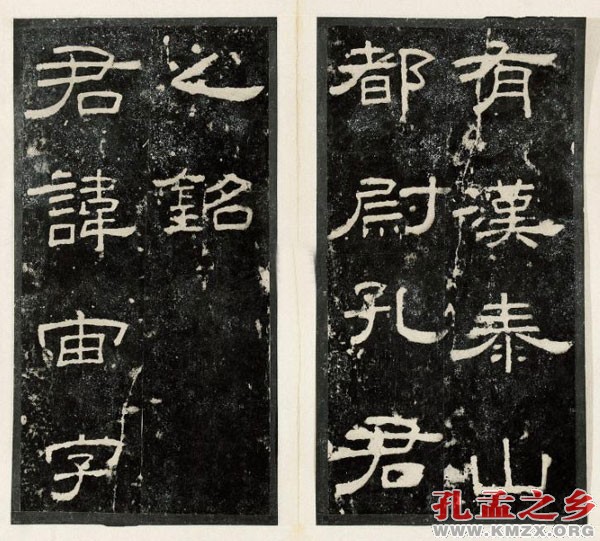 有漢泰山
都尉孔君
之銘
君諱宙字
孔孟之乡
WWW.KMZX.ORG